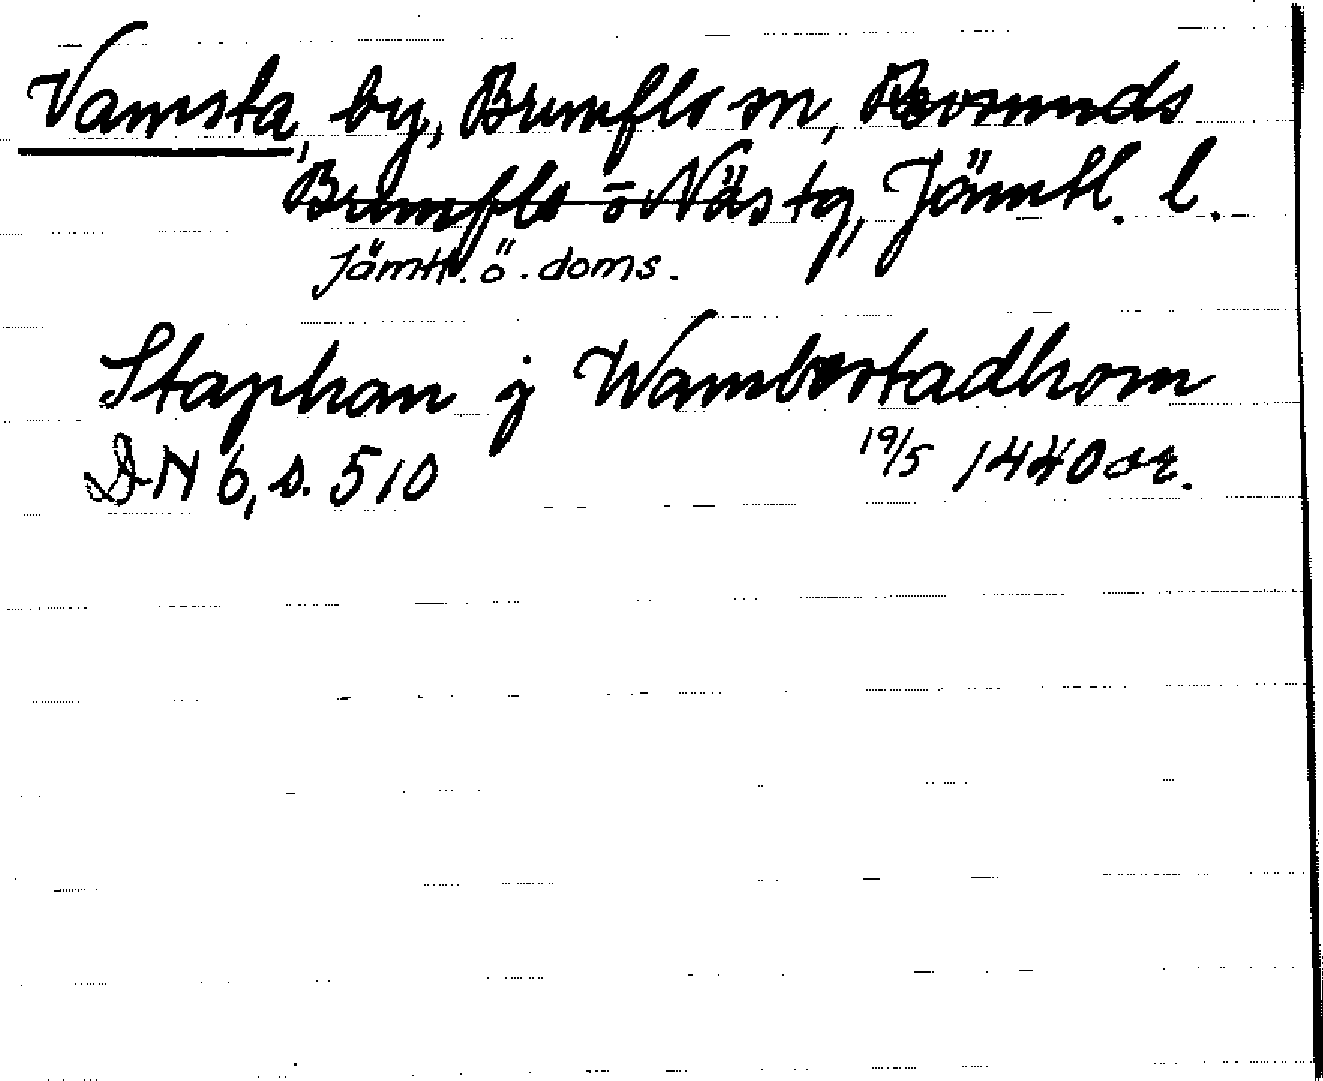 Vamsta, by, Brunflo sn, Revsunds
Brunflo o Näs tg, Jämtl. l.
Jämtl. ö. doms.
Staphan j Wambestadhom
DN 6, s. 510 19/5 1440 or.